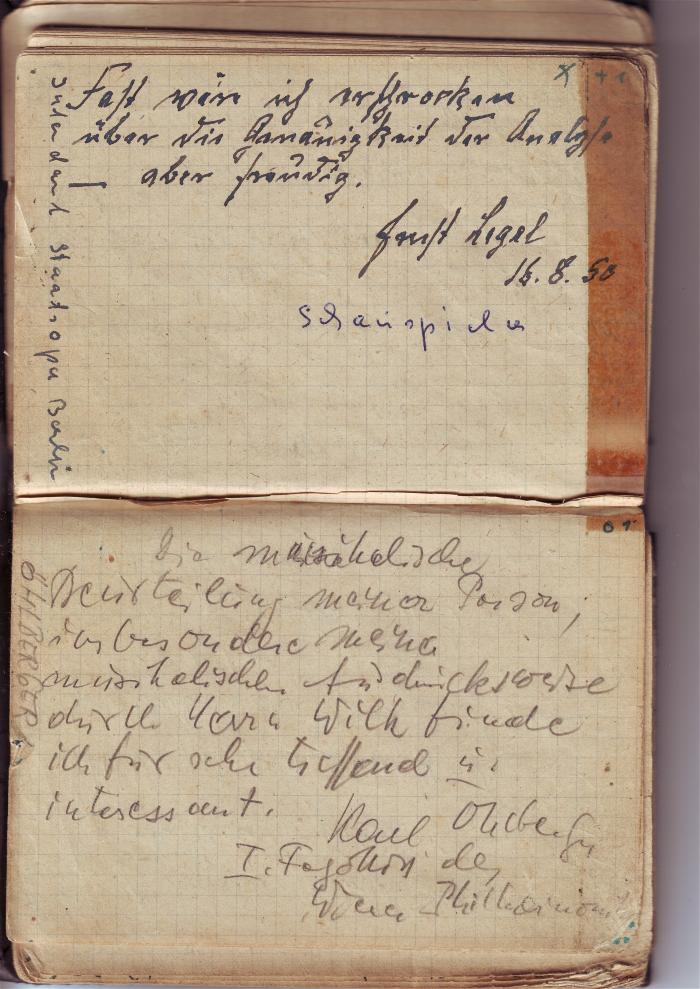 x + 1
Fast wäre ich erschrocken
über die Genauigkeit der Analyse
— aber freudig.
Ernst Legal
16.8.50
Schauspieler
Intendant Staatsoper Berlin
01
Die musikalische
Beurteilung meiner Person,
insbesondere meine
musikalischen Ausdrucksweise
durch Herrn Wilk finde
ich für sehr treffend u.
interessant.
Karl Öhlberger
I. Fagottist der
Wiener Philharmoni
ÖHLBERGER